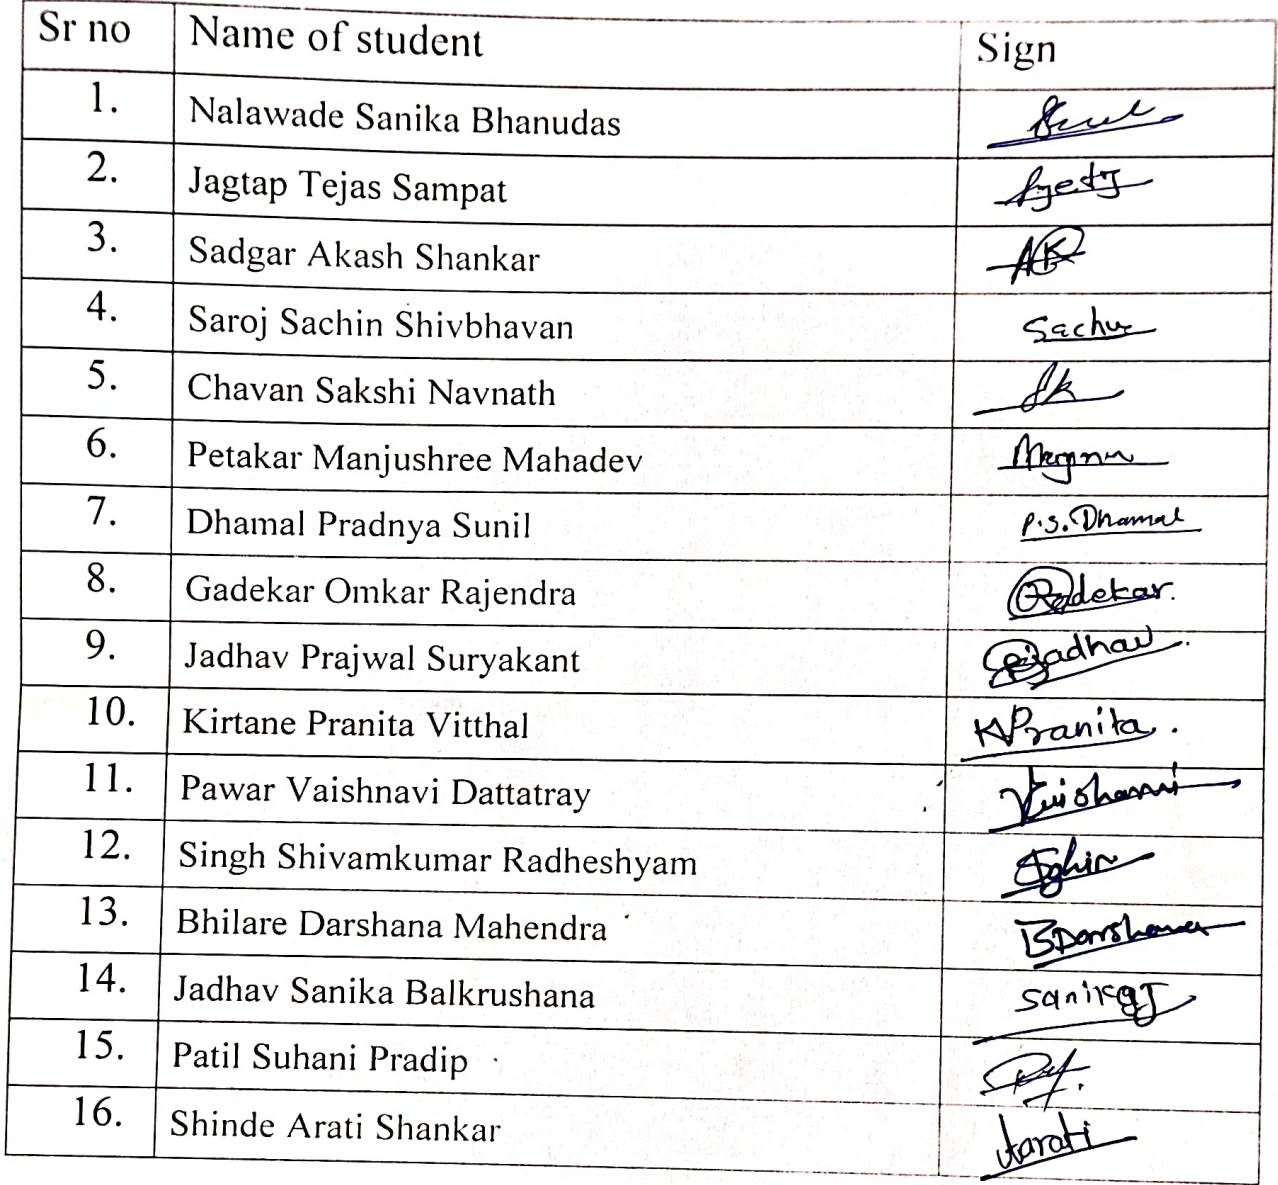 Sr no Name of student Sign
1. Nalawade Sanika Bhanudas
2. Jagtap Tejas Sampat
3. Sadgar Akash Shankar AK
4. Saroj Sachin Shivbhavan
5. Chavan Sakshi Navnath
6. Petakar Manjushree Mahadev
7. Dhamal Pradnya Sunil P.S. Dhamal
8. Gadekar Omkar Rajendra
9. Jadhav Prajwal Suryakant
10. Kirtane Pranita Vitthal KPranita.
11. Pawar Vaishnavi Dattatray
12. Singh Shivamkumar Radheshyam
13. Bhilare Darshana Mahendra BDarshana
14. Jadhav Sanika Balkrushana SanikaJ
15. Patil Suhani Pradip
16. Shinde Arati Shankar Aarati